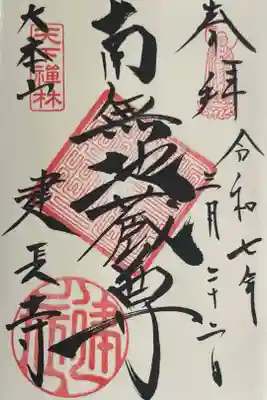 奉拝
令和七年
三月二十六日
南無地蔵尊
天下禅林
大本山
建長寺